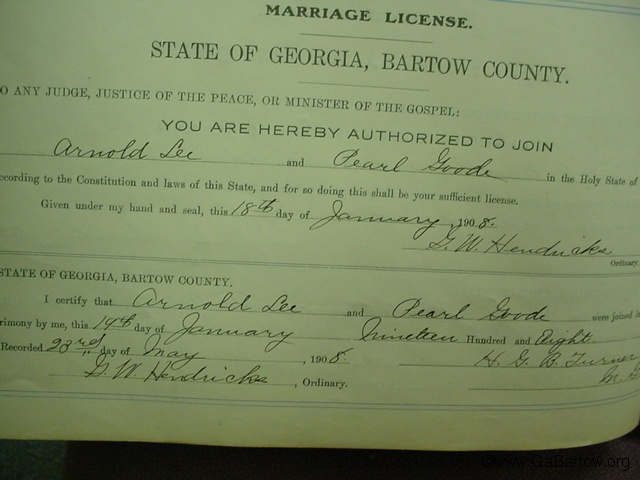 MARRIAGE LICENSE.
STATE OF GEORGIA, BARTOW COUNTY.
O ANY JUDGE, JUSTICE OF THE PEACE, OR MINISTER OF THE GOSPEL:
YOU ARE HEREBY AUTHORIZED TO JOIN
Arnold Lee and Pearl Goode in the Holy State of
ccording to the Constitution and laws of this State, and for so doing this shall be your sufficient license.
Given under my hand and seal, this 18th day of January, 1908.
G. W. Hendricks
Ordinary.
STATE OF GEORGIA, BARTOW COUNTY.
I certify that Arnold Lee and Pearl Goode were joined in
rimony by me, this 19th day of January Nineteen Hundred and Eight
Recorded 23rd day of May, 1908. H. G. B. Turner
G. W. Hendricks, Ordinary. M. G
www.GaBartow.org